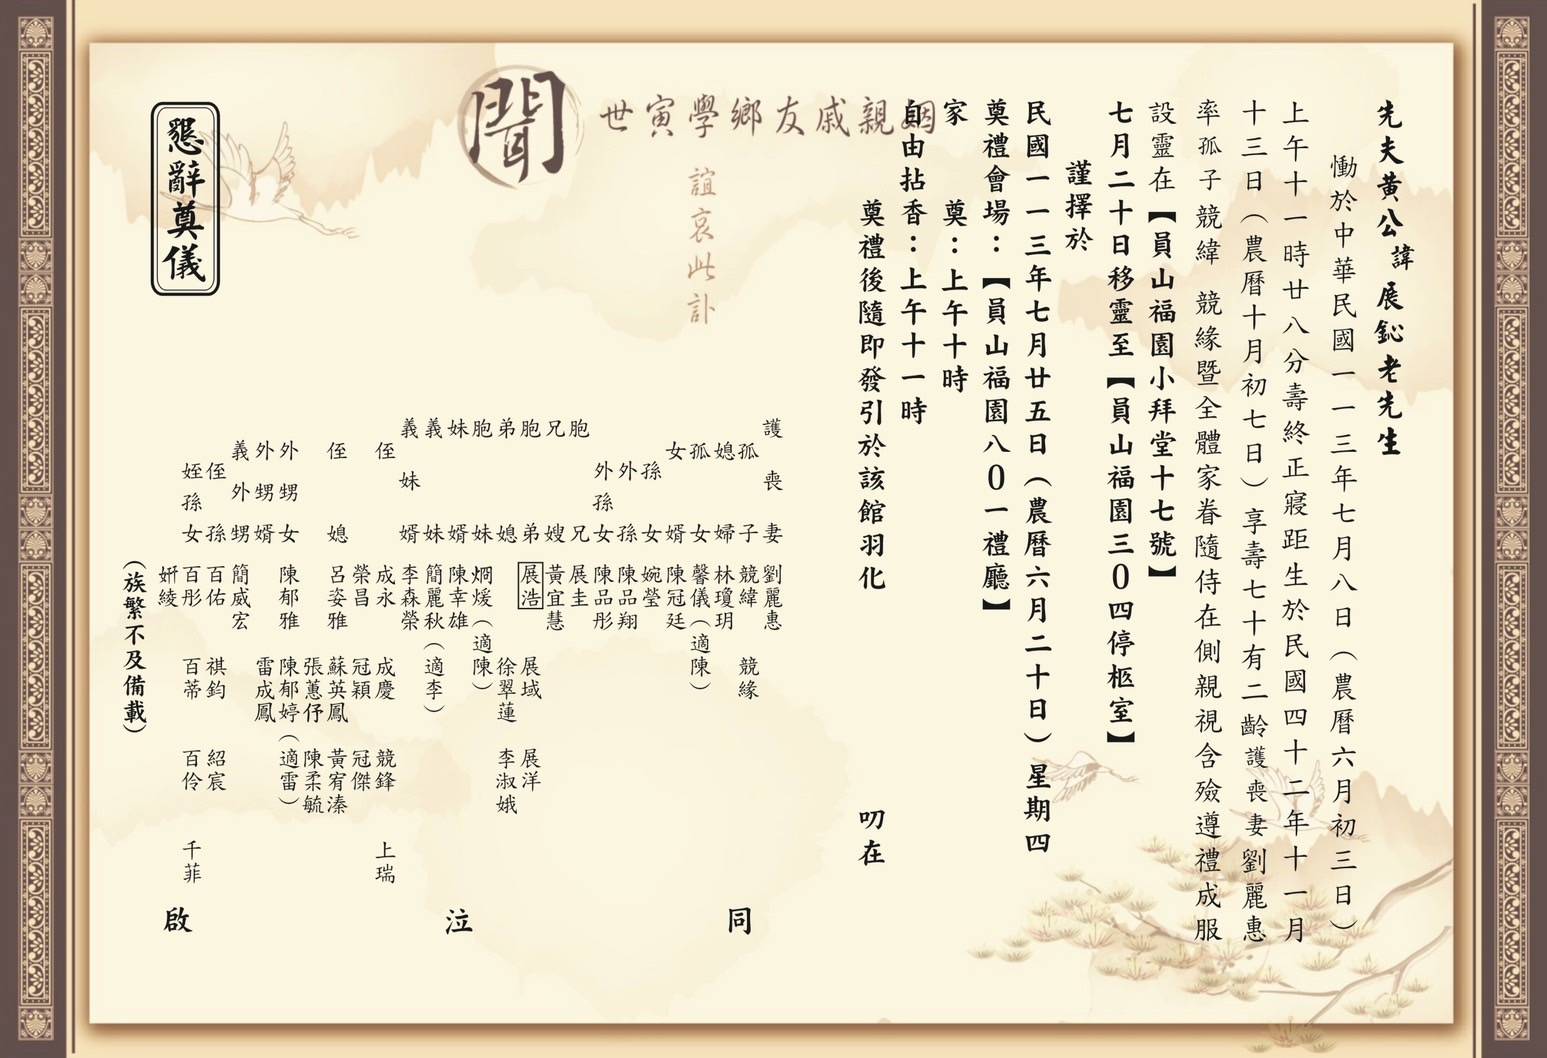 先夫黃公諱展鈊老先生
慟於中華民國一一三年七月八日（農曆六月初三日）
上午十一時廿八分壽終正寢距生於民國四十二年十一月
十三日（農曆十月初七日）享壽七十有二齡護喪妻劉麗惠
率孤子競緯 競緣暨全體家眷隨侍在側親視含殮遵禮成服
設靈在【員山福園小拜堂十七號】
七月二十日移靈至【員山福園三0四停柩室】
謹擇於
民國一一三年七月廿五日（農曆六月二十日）星期四
奠禮會場：【員山福園八0一禮廳】
家 奠：上午十時
自由拈香：上午十一時
奠禮後隨即發引於該館羽化 叨在
姻親戚友鄉學寅世
誼哀此訃
聞
護喪妻 劉麗惠
孤子 競緯 競緣
媳婦 林瓊玥
孤女 馨儀（適陳）
女婿 陳冠廷
孫女 婉瑩
外孫 陳品翔
外孫女 陳品彤
胞兄 展圭
兄嫂 黃宜慧
胞弟 展浩 展域 展洋
弟媳 徐翠蓮 李淑娥
胞妹 烱煖（適陳）
妹婿 陳幸雄
義妹 簡麗秋（適李）
義妹婿 李森榮
侄 成永 成慶 競鋒 上瑞
榮昌 冠穎 冠傑
侄媳 呂姿雅 蘇英鳳 黃宥溱
張蕙伃 陳柔毓
外甥女 陳郁雅 陳郁婷（適雷）
外甥婿 雷成鳳
義外甥 簡威宏
侄孫 百佑 祺鈞 紹宸
姪孫女 百彤 百蒂 百伶 千菲
妍綾
（族繁不及備載）
同 泣 啟
懇辭奠儀